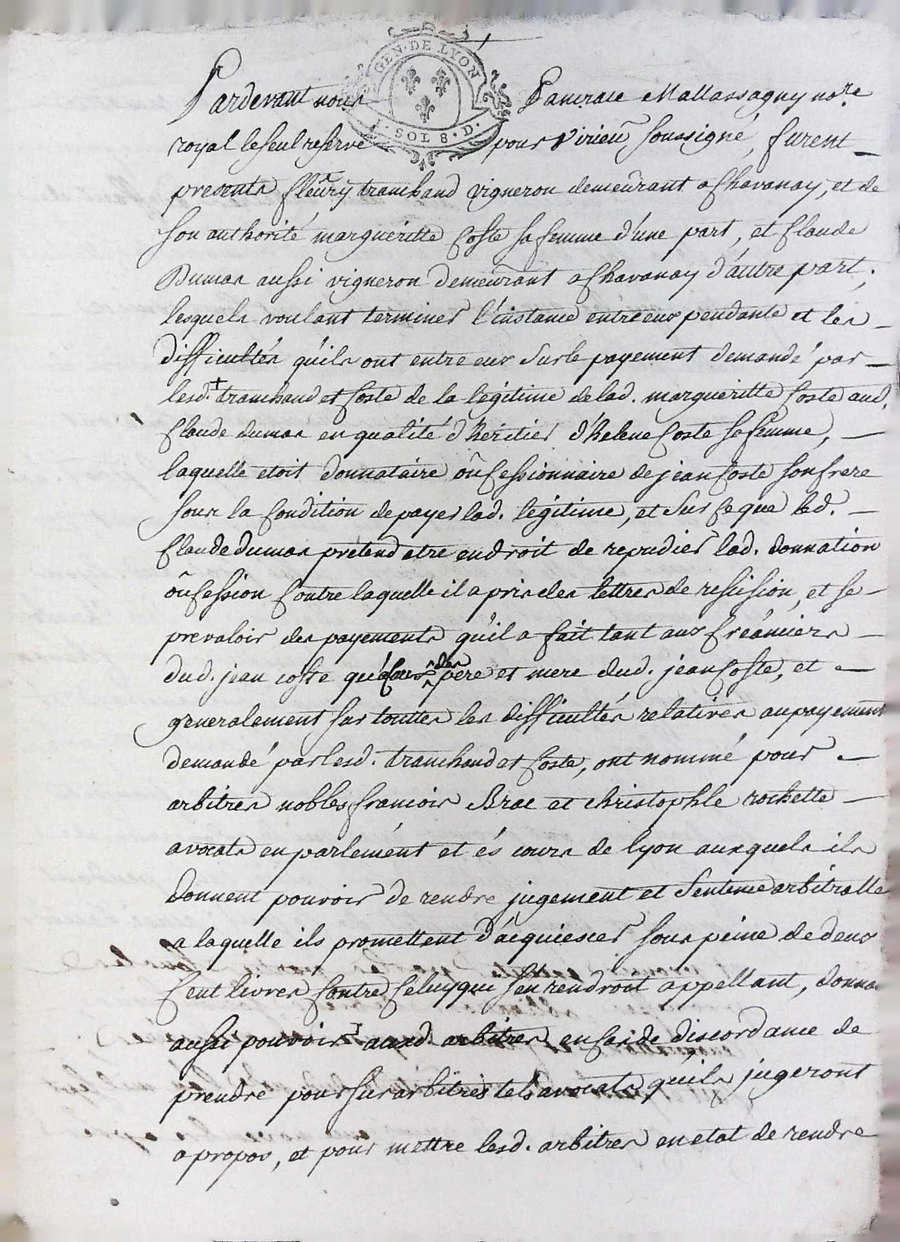 GEN · DE LYON
I · SOL 8 · D ·
Pardevant nous Pancrace Mallassagny no.re
royal le seul reservé pour Virieu soussigné, furent
presents fleury tranchand vigneron demeurant a Chavanay, et de
son authorité margueritte Coste sa femme d'une part, et Claude
Dumas aussi vigneron demeurant a Chavanay d'autre part;
lesquels voulant terminer l'instance entre eux pendante et les
difficultés qu'ils ont entre eux sur le payement demandé par
lesd. tranchand et Coste de la légitime de lad. margueritte Coste aud.
Claude dumas en qualité d'héritier d'helene Coste sa femme,
laquelle etoit donnataire ou Cessionnaire de jean Coste son frere
sous la Condition de payer lad. légitime, et sur Ce que led.
Claude dumas prétend etre en droit de repudier lad. donnation
ou Cession Contre laquelle il a pris des lettres de resision, et se
prevaloir des payements qu'il a fait tant aux Créanciers
dud. jean coste des père et mere dud. jean Coste, et
generalement sur touttes les difficultés relatives au payement
demandé par lesd. tranchand et Coste, ont nommé pour
arbitres nobles francois Brac et christophle rochette
avocats en parlément et és cours de lyon auxquels ils
donnent pouvoir de rendre jugement et sentence arbitralle
a laquelle ils promettent d'acquiescer sous peine de deux
Cent livres Contre Celuy qui s'en rendront appellant, donnant
aussi pouvoir auxd. arbitres en Cas de discordance de
prendre pour sur arbitres tels avocats qu'ils jugeront
a propos, et pour mettre lesd. arbitres en etat de rendre